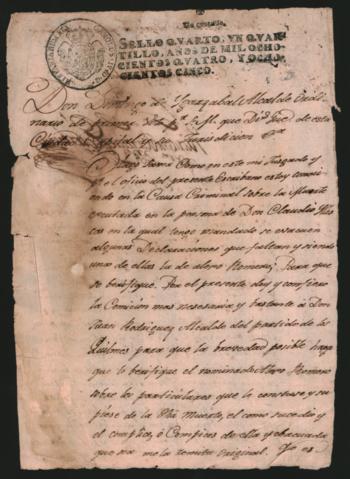 Un quartillo.
SELLO QVARTO, VN QVAR-
TILLO, AÑOS DE MIL OCHO-
CIENTOS QVATRO, Y OCHO-
CIENTOS CINCO.
Don de Alcalde Ordi-
nario de primer Voto p.r S. M. que Dios Gue. de esta
Capital y su Jurisdicion &a
como en este mi Juzgado y
p.r el oficio del presente Escribano estoy conosi-
endo en la Causa Criminal sobre la Muerte
executada en la persona de Don Claudio
en la qual tengo mandado se evacuen
algunas Declaraciones que faltan, y siendo
una de ellas la de Romero; Para que
se berifique. Por el presente doy y confiero
la Comicion mas nesesaria y bastante a Don
Juan Rodriguez Alcalde del partido de los
Quilmes para que la brevedad posible haga
que lo berifique el nominado Romero
sobre los particulares que le conste y su-
piese de la Dha Muerte, el como sucedio y
el complice, ò Complices de ella y evacuada
que sea me la remita original.